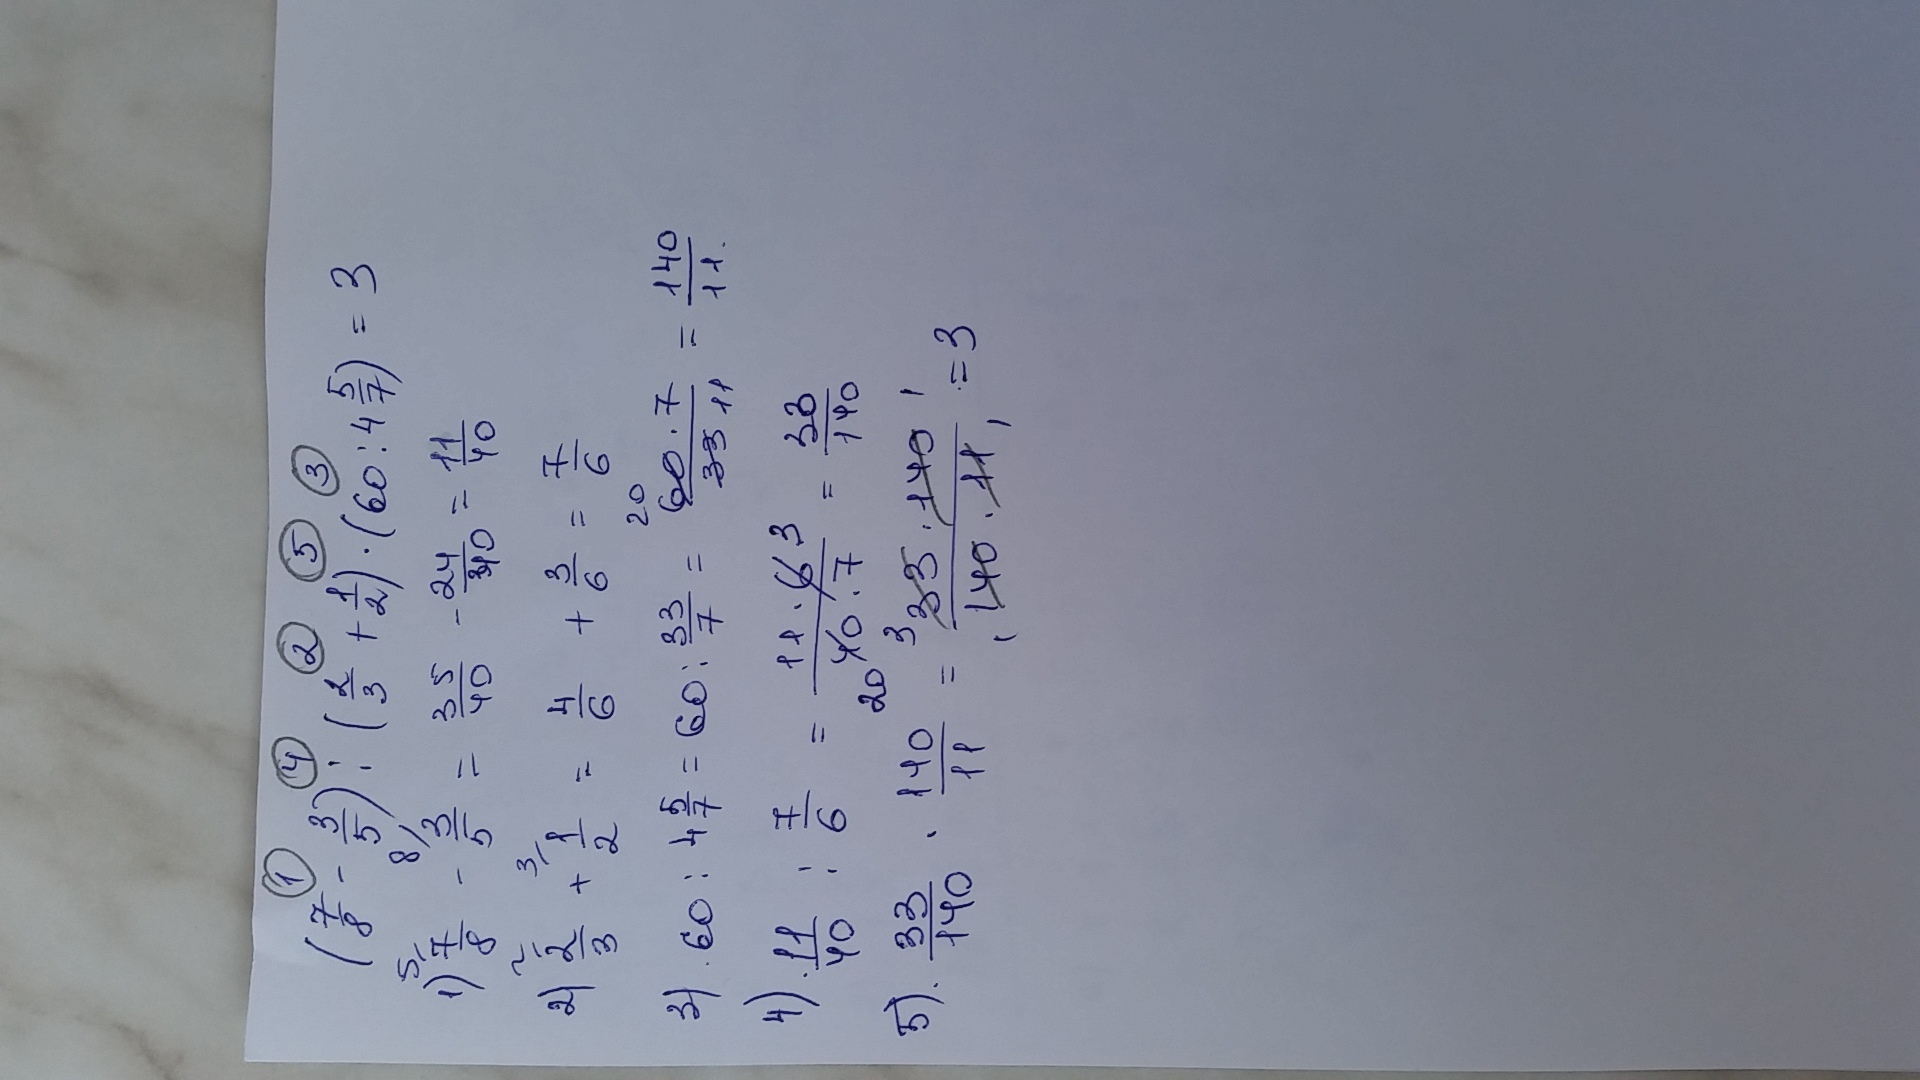 ① ④ ② ⑤ ③
(7/8 - 3/5) : (2/3 + 1/2) · (60 : 4 5/7) = 3
1) 5/ 7/8 - 8/ 3/5 = 35/40 - 24/40 = 11/40
2) 2/ 2/3 + 3/ 1/2 = 4/6 + 3/6 = 7/6
3) 60 : 4 5/7 = 60 : 33/7 = 20 60·7/33 11 = 140/11.
4) 11/40 : 7/6 = 11·6 3/20 40·7 = 33/140
5). 33/140 · 140/11 = 3 33·140 1/1 140·11 1 = 3